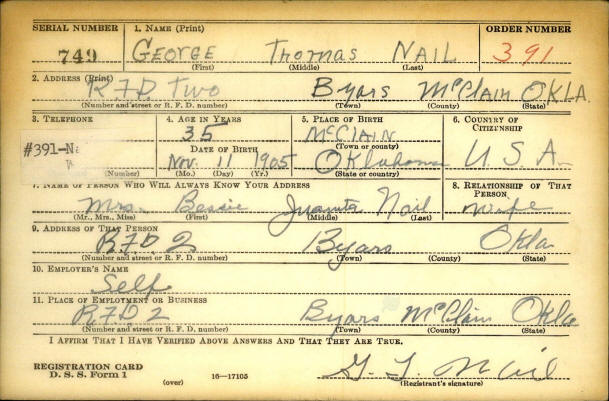 SERIAL NUMBER 1. NAME (Print) ORDER NUMBER
749 GEORGE Thomas NAIL 391
(First) (Middle) (Last)
2. ADDRESS (Print)
R.F.D. Two Byars McClain OKLA.
(Number and street or R. F. D. number) (Town) (County) (State)
3. TELEPHONE 4. AGE IN YEARS 5. PLACE OF BIRTH 6. COUNTRY OF CITIZENSHIP
35 McCLAIN
DATE OF BIRTH (Town or county)
#391-Na Nov. 11 1905 Oklahoma U.S.A.
(Number) (Mo.) (Day) (Yr.) (State or country)
7. NAME OF PERSON WHO WILL ALWAYS KNOW YOUR ADDRESS 8. RELATIONSHIP OF THAT PERSON
Mrs. Bessie Juanita Nail Wife
(Mr., Mrs., Miss) (First) (Middle) (Last)
9. ADDRESS OF THAT PERSON
R.F.D 2 Byars Okla
(Number and street or R. F. D. number) (Town) (County) (State)
10. EMPLOYER'S NAME
Self
11. PLACE OF EMPLOYMENT OR BUSINESS
R.F.D 2 Byars McClain Okla
(Number and street or R. F. D. number) (Town) (County) (State)
I AFFIRM THAT I HAVE VERIFIED ABOVE ANSWERS AND THAT THEY ARE TRUE.
REGISTRATION CARD G. T. Nail
D. S. S. Form 1 (over) 16—17105 (Registrant's signature)